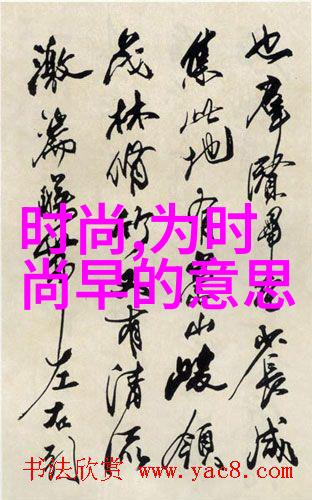 也群賢畢至少長咸
集此地有崇山峻領
茂林脩竹又有清流
激湍暎帶左右引
时尚,为时
尚早的意思
书法欣赏 www.yac8.com